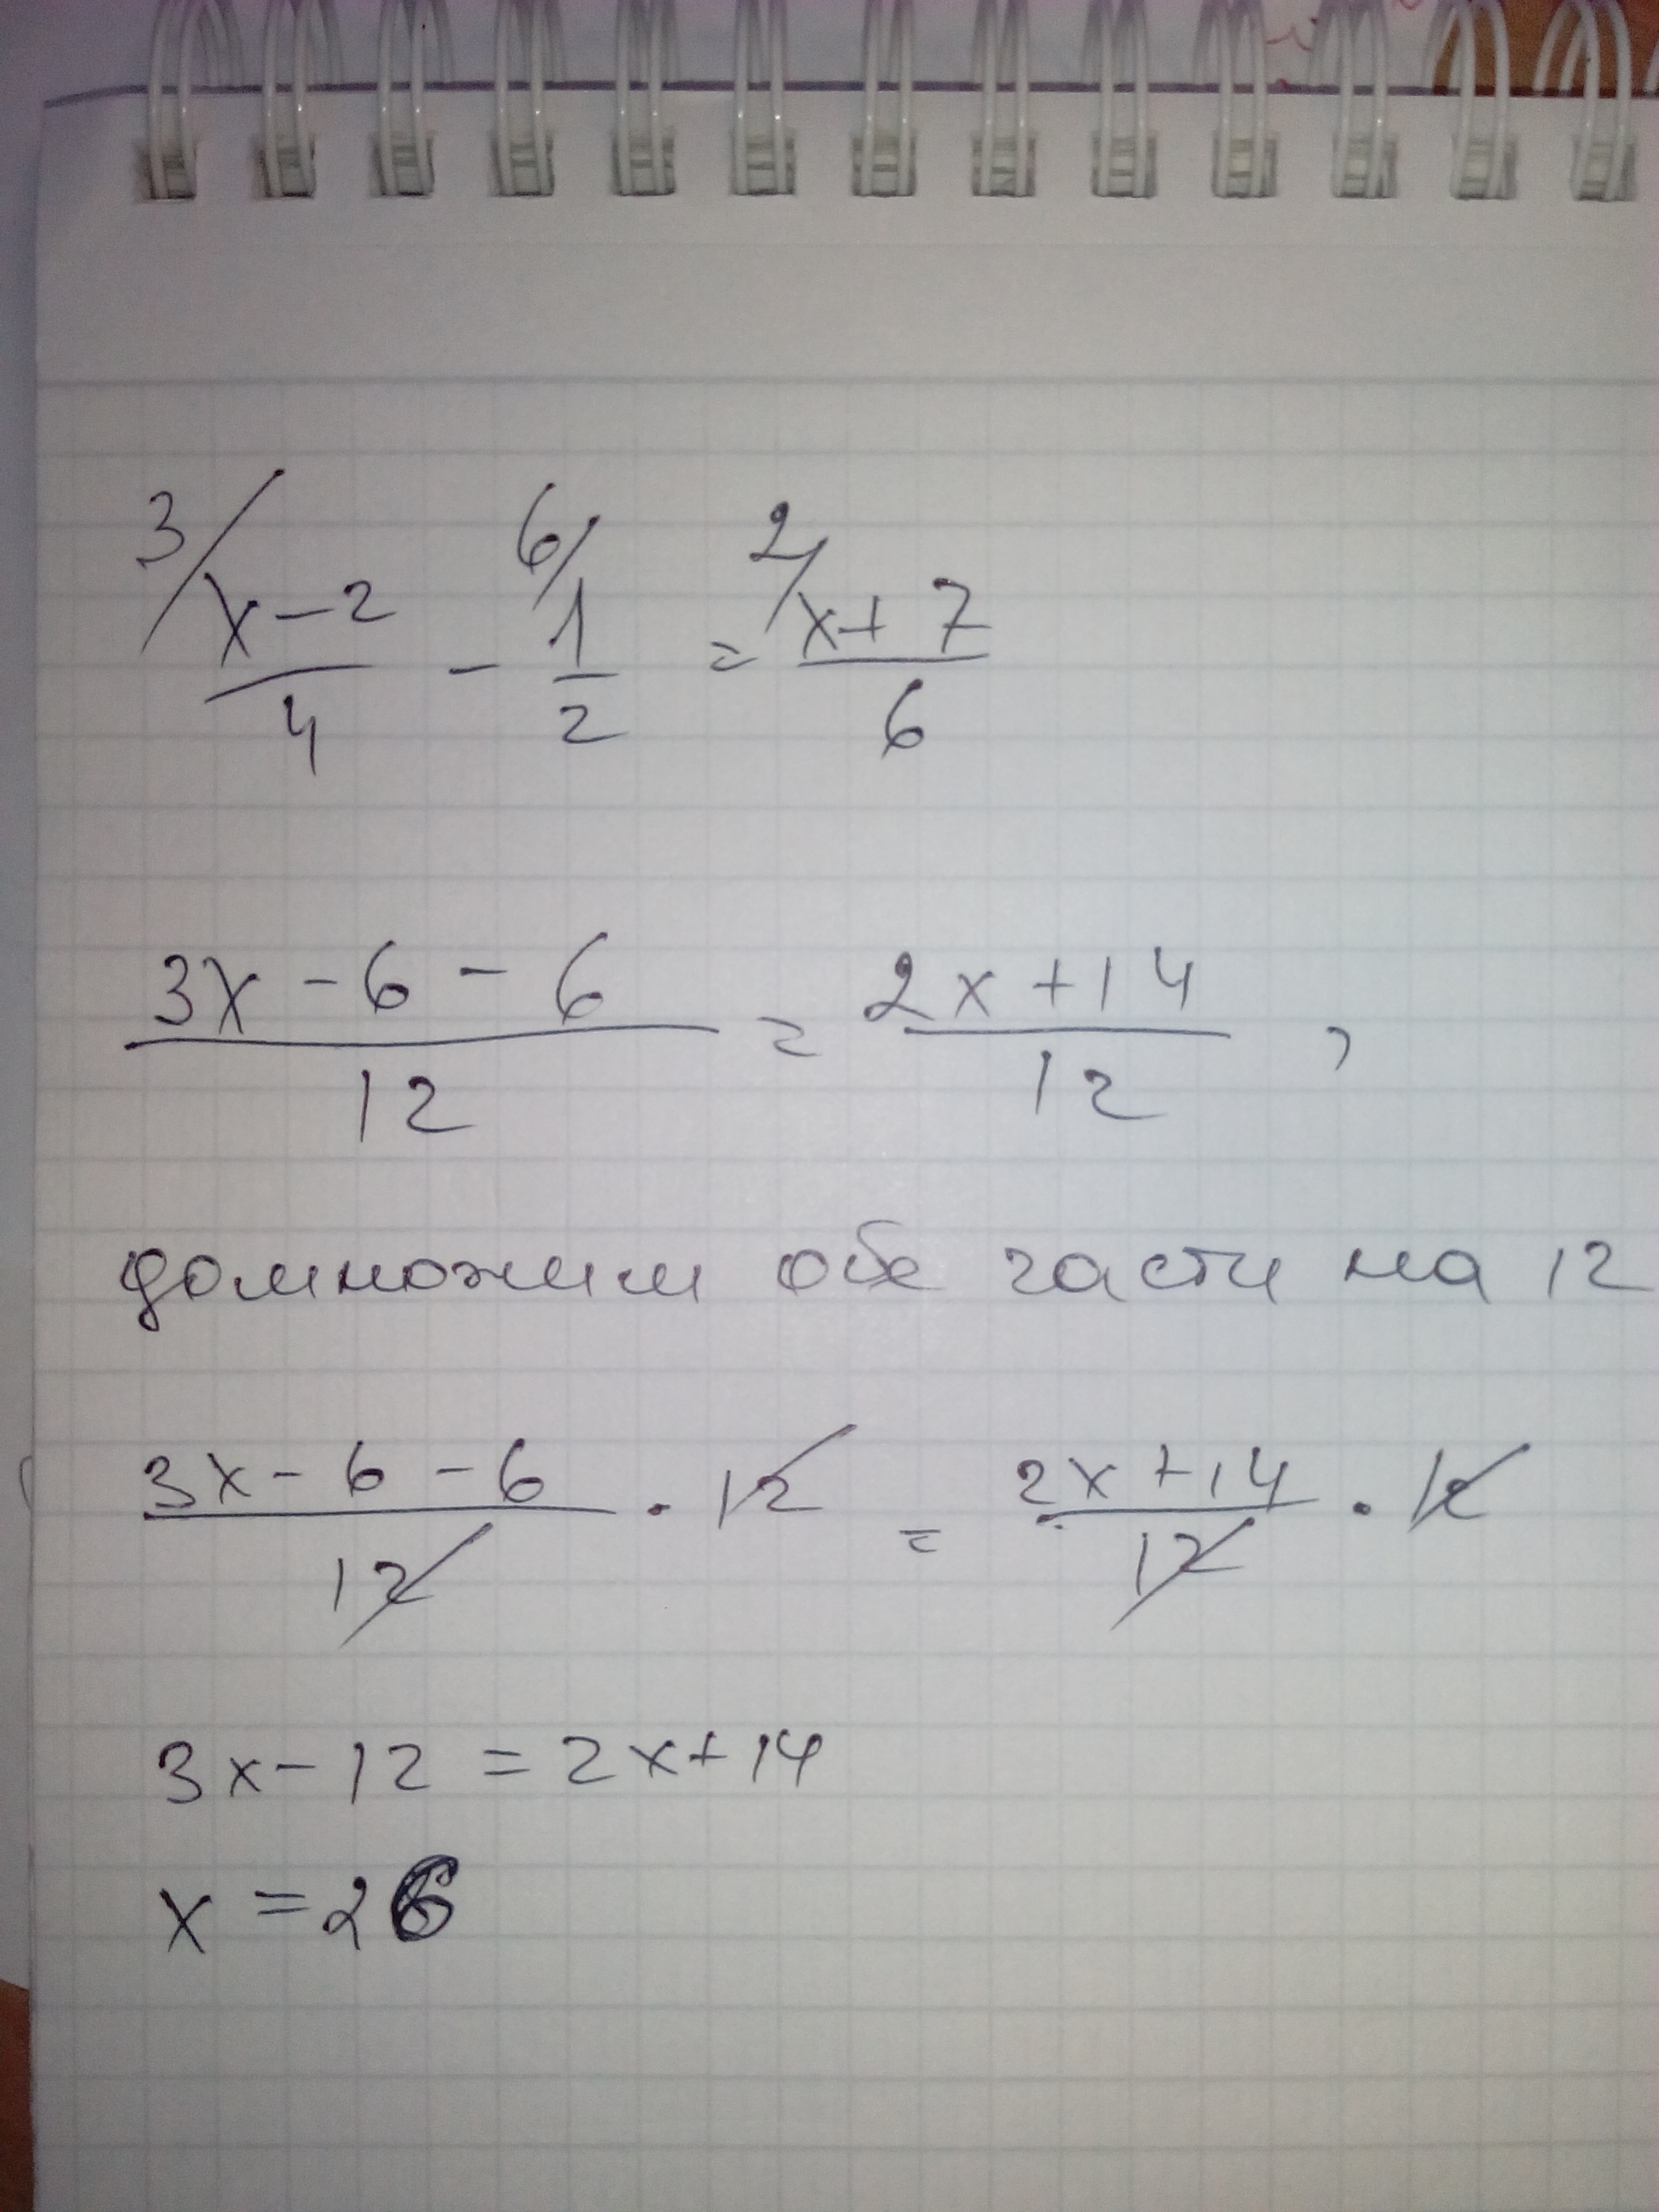 3/ x-2/4 - 6/ 1/2 = 2/ x+7/6
3x-6-6/12 = 2x+14/12 ,
домножим обе части на 12
3x-6-6/12 · 12 = 2x+14/12 · 12
3x-12=2x+14
x=26